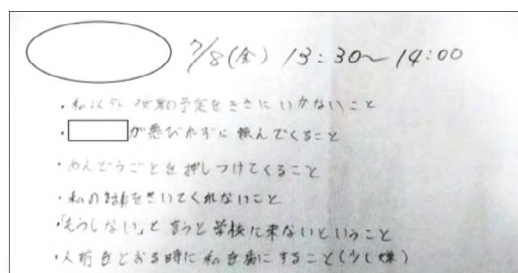 7/8(金) 13:30〜14:00
・私以外 授業の予定をききにいかないこと
・ が悪びれずに頼んでくること
・めんどうごとを押しつけてくること
・私の話をきいてくれないこと
・「もうしない」と言うと学校に来ないということ
・人前をとおる時に私を盾にすること(少し嫌)